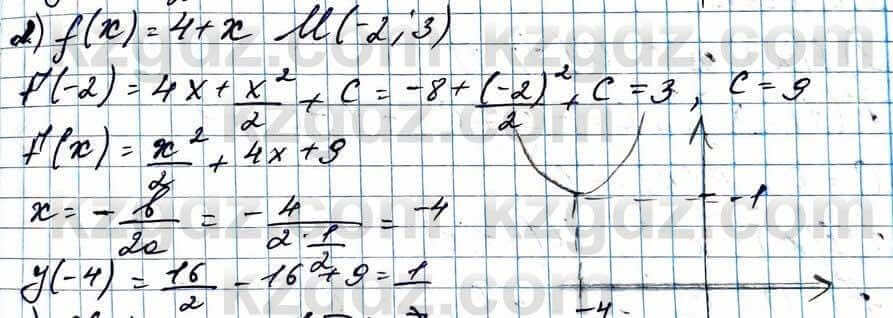 2) f(x) = 4 + x M(-2; 3)
F(-2) = 4x + x²/2 + C = -8 + (-2)²/2 + C = 3, C = 9
F(x) = x²/2 + 4x + 9
x = - b/2a = - 4/(2·1/2) = -4
y(-4) = 16/2 - 16 + 9 = 1
-1
-4
kzgdz.com